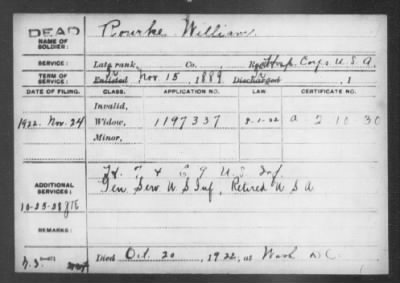 DEAD
NAME OF SOLDIER:
Rourke William
SERVICE:
Late rank, Co. , Reg't Hosp. Corps U.S.A.
TERM OF SERVICE:
Enlisted Nov. 15, 1889 Discharged , 1
DATE OF FILING. CLASS. APPLICATION NO. LAW. CERTIFICATE NO.
Invalid,
1922. Nov. 24 Widow, 1197337 5-1-22 a 2 10 30
Minor,
ADDITIONAL SERVICES:
F & G 9 U.S. Inf.
Gen Serv U S Inf, Retired U S A
10-25-28
REMARKS:
Died Oct. 20, 1922, at Wash D.C.